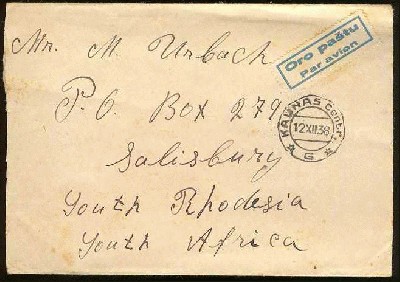 Mr. M. Urbach
Oro paštu
Par avion
P.O. Box 279
KAUNAS Centr.
12XII38
G
Salisbury
South Rhodesia
South Africa